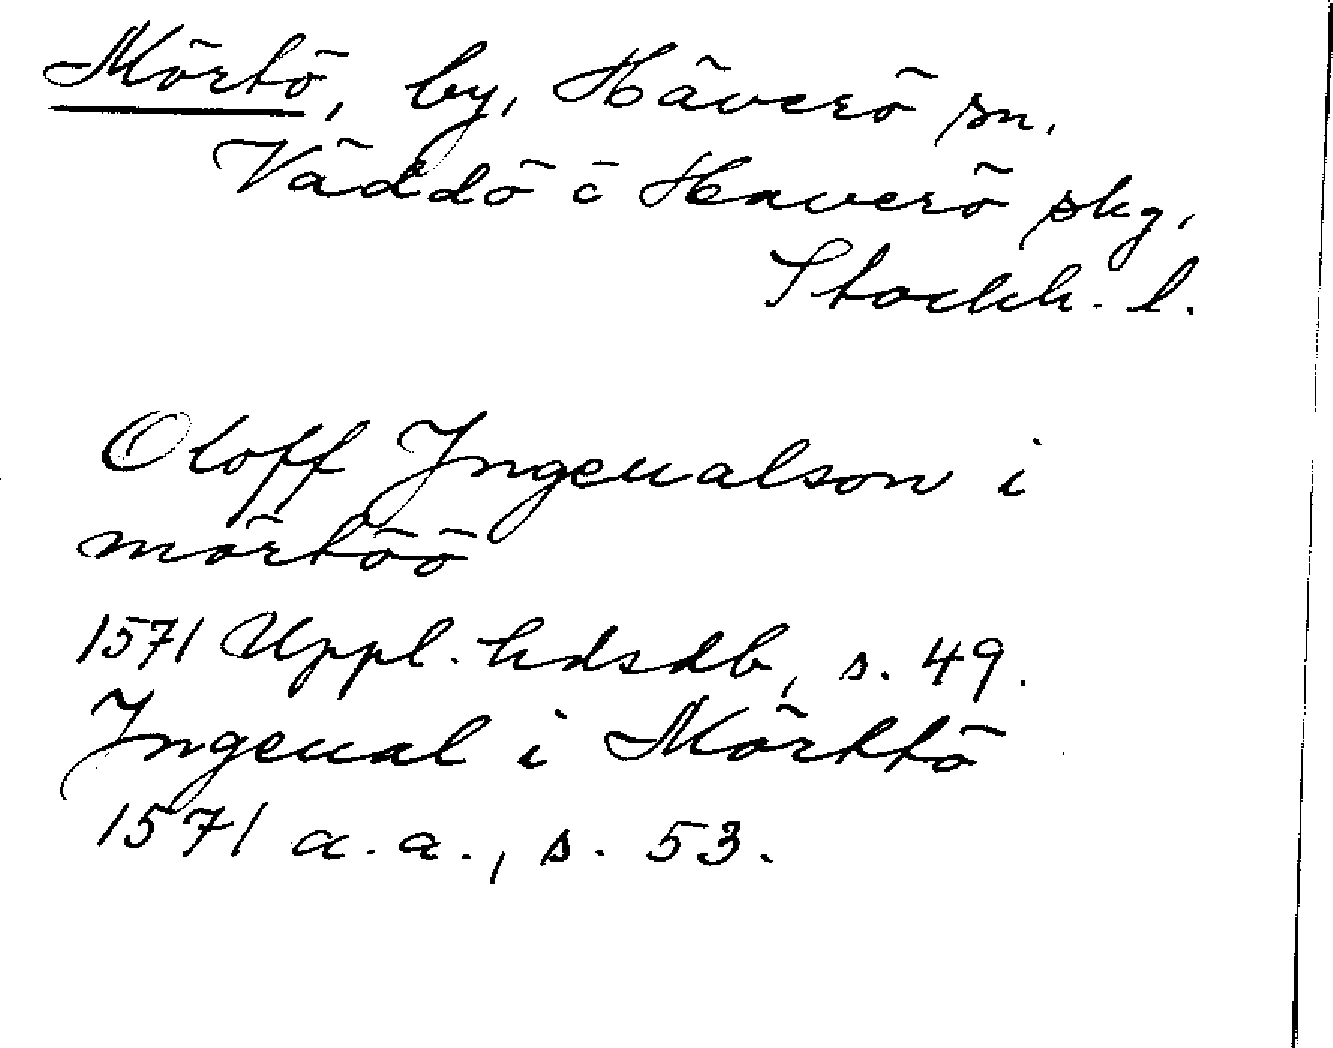 Mörtö, by, Häverö sn.
Väddö o Haverö skg,
Stockh. l.
Oloff Jngeualson i
mörtöö
1571 Uppl. hdsdb, s. 49.
Jngeual i Mörttö
1571 a.a., s. 53.